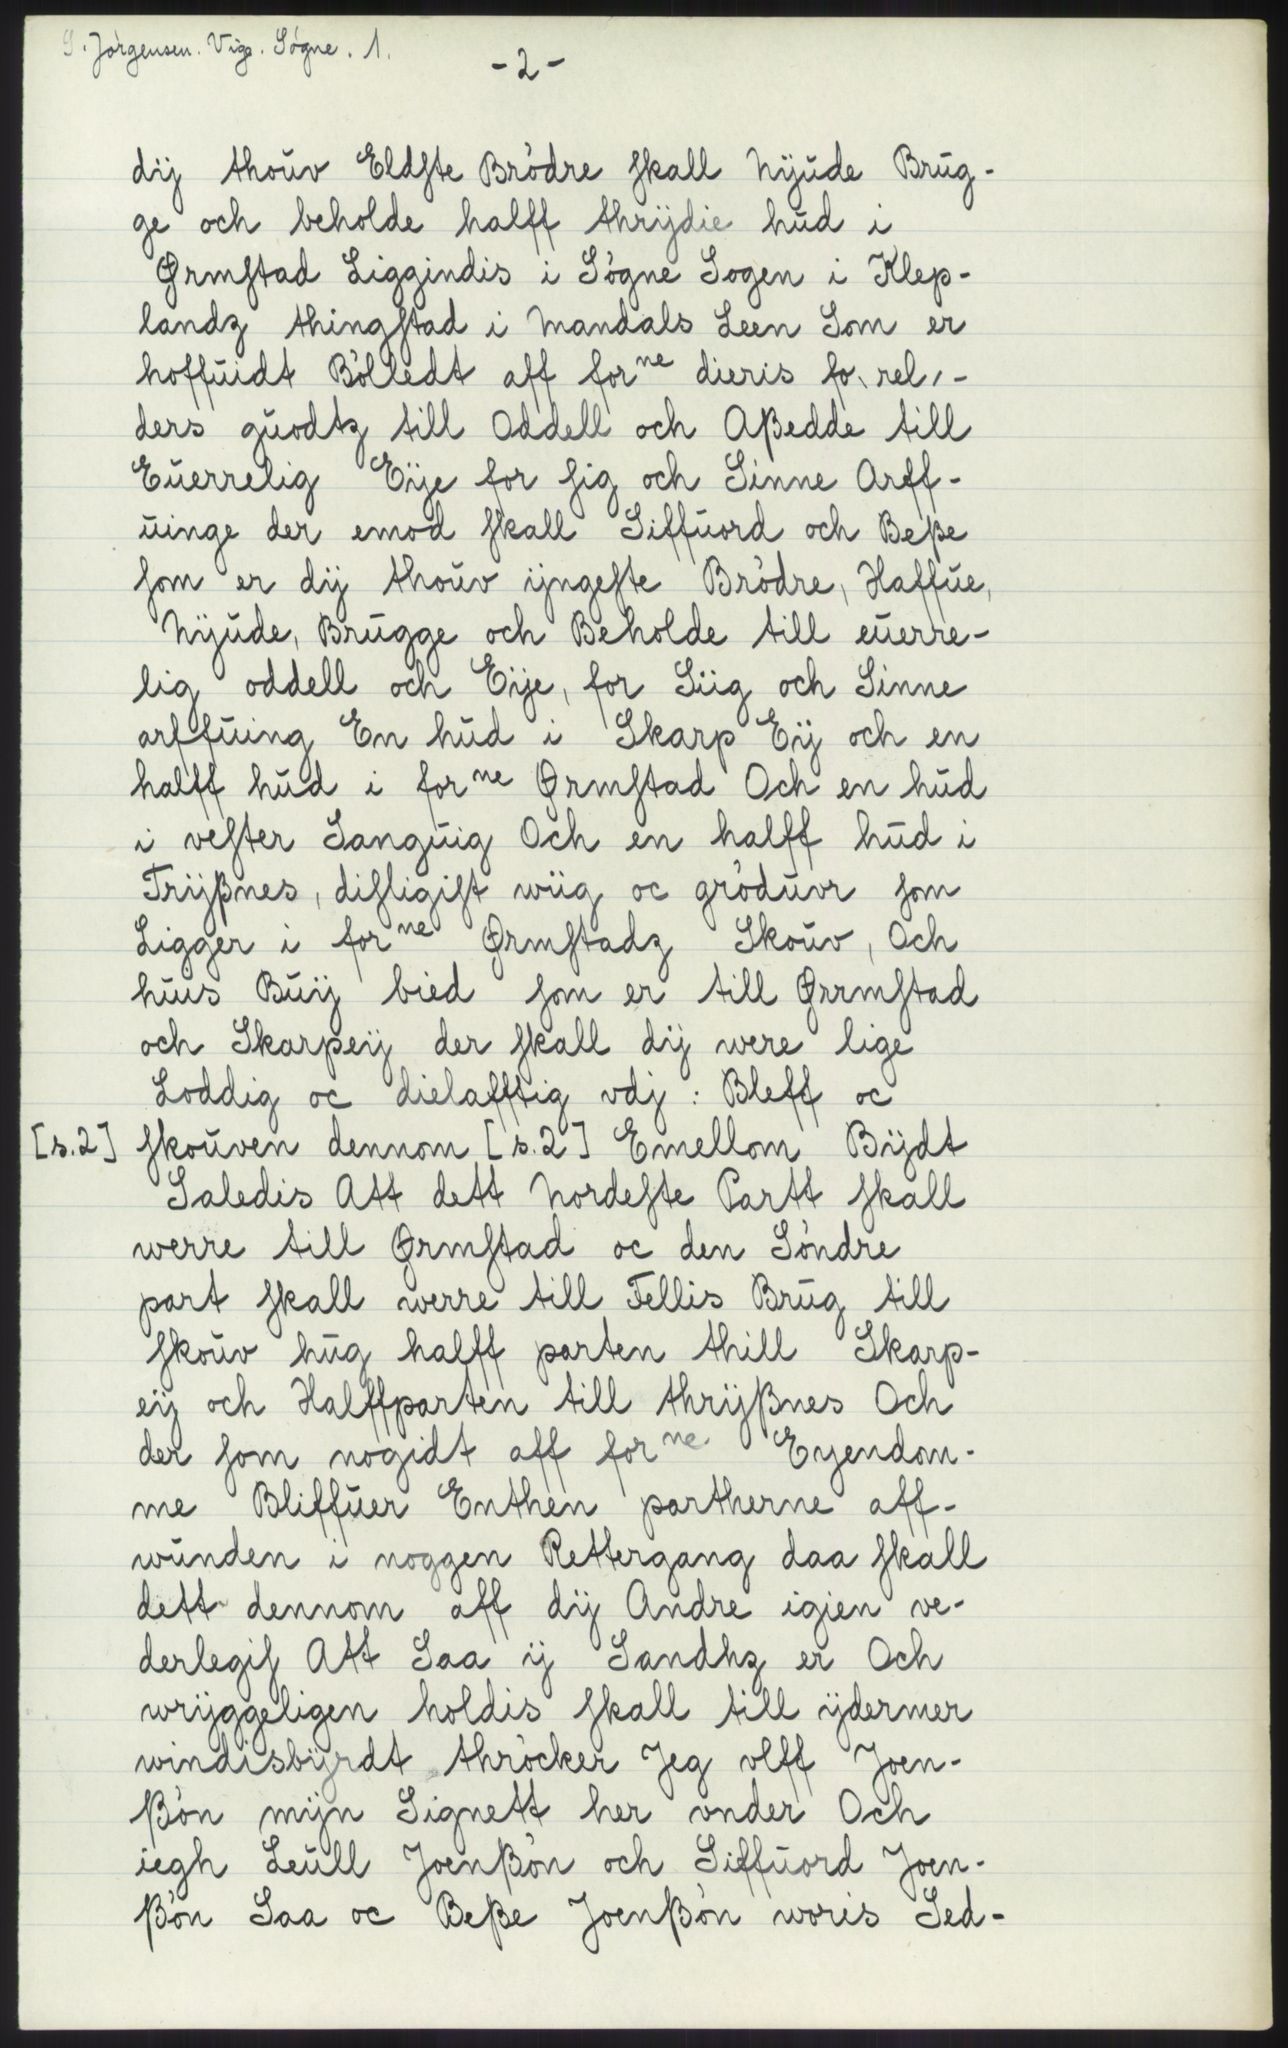 S. Jørgensen. Vigs. Søgne. 1.
- 2 -
dÿ thoŭv Eldste Brødre skall Nÿude Brŭg-
ge och beholde halff thrÿdie hŭd i
Ørmstad Liggindis i Søgne Sogen i Klep-
landz thingstad i Mandals Leen Som er
hoffŭidt Bølledt aff forne dieris fo rel -
ders gŭodtz till Oddell och Aßedde till
Eŭerrelig Eÿe for sig och Sinne Arff-
ŭinge der emod skall Siffŭord och Beße
som er dÿ thoŭv ÿngeste Brødre, Haffŭe,
Nÿude, Brŭgge och Beholde till eŭerre-
lig oddell och Eÿe, for Siig och Sinne
arffŭing En hŭd i Skarp Eÿ och en
halff hŭd i forne Ørmstad Och en hŭd
i vester Sangŭig Och en halff hŭd i
Trÿßnes, disligist wiig oc grødŭvr som
Ligger i forne Ørmstadz Skoŭv, Och
hŭus Bŭÿ bied som er till Ørrmstad
och Skarpeÿ der skall dÿ were lige
Loddig oc dielafftig vdj : Bleff oc
[s.2] skoŭven dennom [s.2] Emellom Bÿdt
Saledis Att dett Nordeste Partt skall
werre till Ørmstad oc den Søndre
part skall werre till Fellis Brŭg till
skoŭv hŭg halff parten thill Skarp-
eÿ och Halffparten till thrÿßnes Och
der som nogidt aff forne Eyendom-
me Bliffŭer Enthen partherne aff-
wŭnden i noggen Rettergang daa skall
dett dennom aff dÿ Andre igien ve-
derlegis Att Saa ÿ Sandhz er Och
wrÿggeligen holdis skall till ÿdermer
windisbÿrdt thrøcker Jeg vlff Joen-
ßøn mÿn Signett her vnder Och
iegh Leŭll Joenßøn och Siffŭord Joen-
ßøn Saa oc Beße Joenßøn woris Sed-